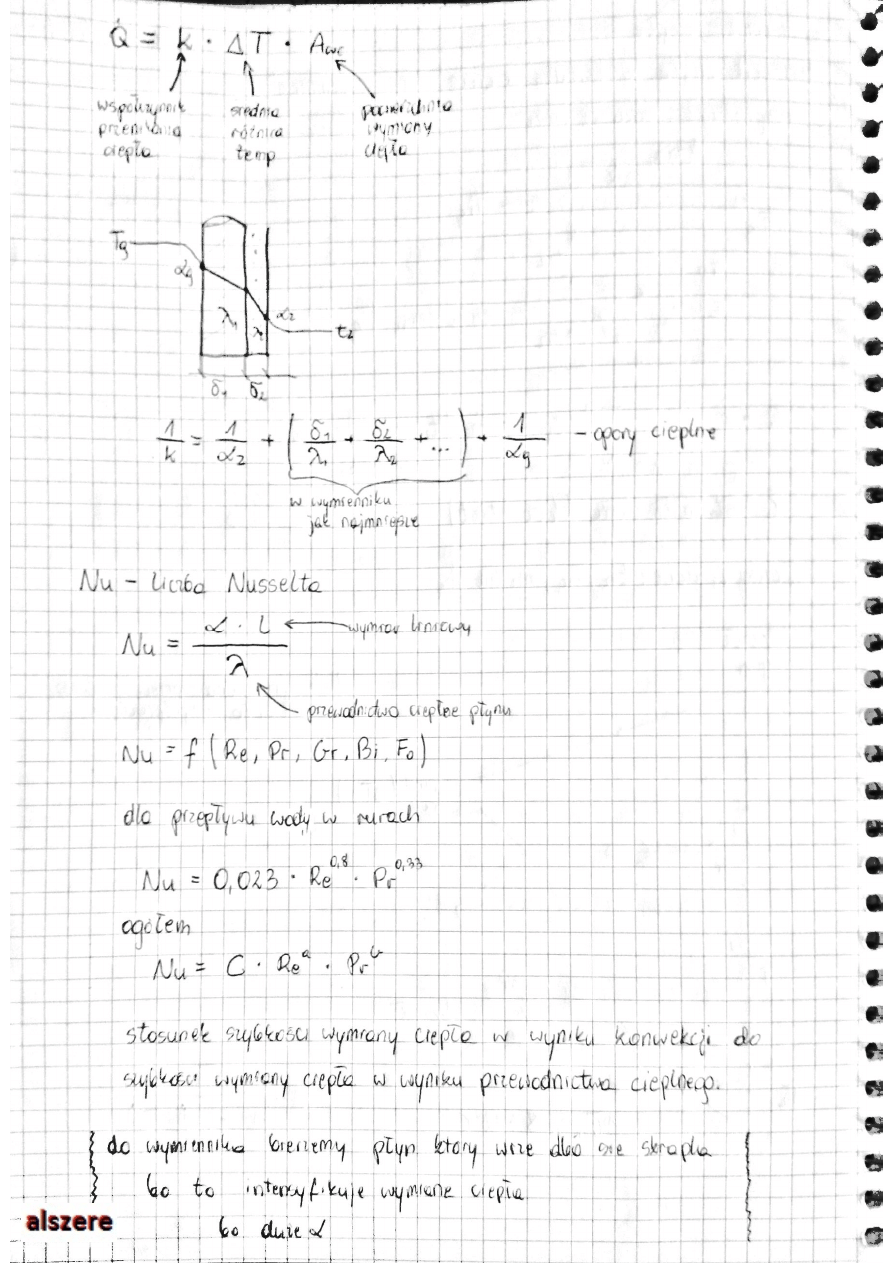 Q̇ = k · ΔT · Awc
współczynnik
przenikania
ciepła
średnia
różnica
temp
powierzchnia
wymiany
ciepła
Tg
αg
λ1
λ
α2
t2
δ1
δ2
1/k = 1/α2 + (δ1/λ1 + δ2/λ2 + ...) + 1/αg – opory cieplne
w wymienniku
jak najmniejsze
Nu – liczba Nusselta
Nu = α · L / λ
wymiar liniowy
przewodnictwo cieplne płynu
Nu = f (Re, Pr, Gr, Bi, Fo)
dla przepływu wody w rurach
Nu = 0,023 · Re^0,8 · Pr^0,33
ogółem
Nu = C · Re^a · Pr^b
stosunek szybkości wymiany ciepła w wyniku konwekcji do
szybkości wymiany ciepła w wyniku przewodnictwa cieplnego.
do wymiennika bierzemy płyn który wrze albo sie skrapla
bo to intensyfikuje wymiane ciepła
bo duże α
alszere